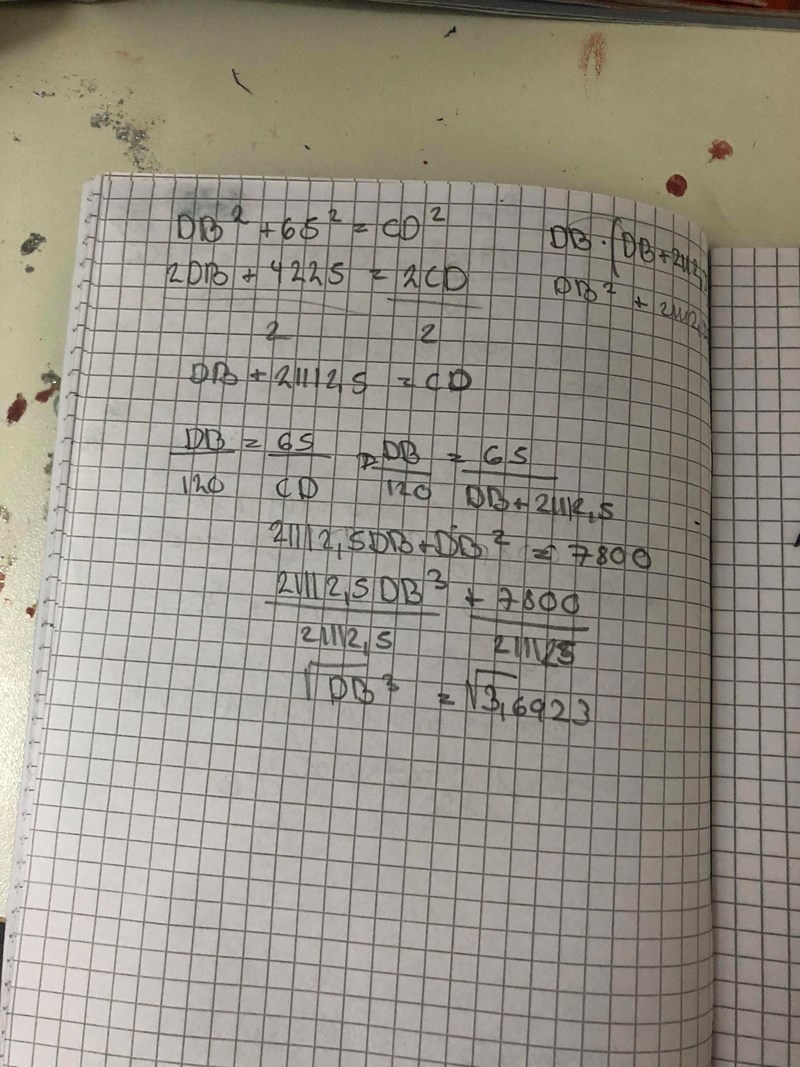 DB² + 65² = CD²
2DB + 4225 = 2CD
2 2
DB + 21112,5 = CD
DB/120 = 65/CD DB/120 = 65/DB + 21112,5
21112,5DB + DB² = 7800
21112,5DB³ + 7800
21112,5 21112,5
√DB³ = √3,6923
DB · (DB + 2112,
DB² + 2112,